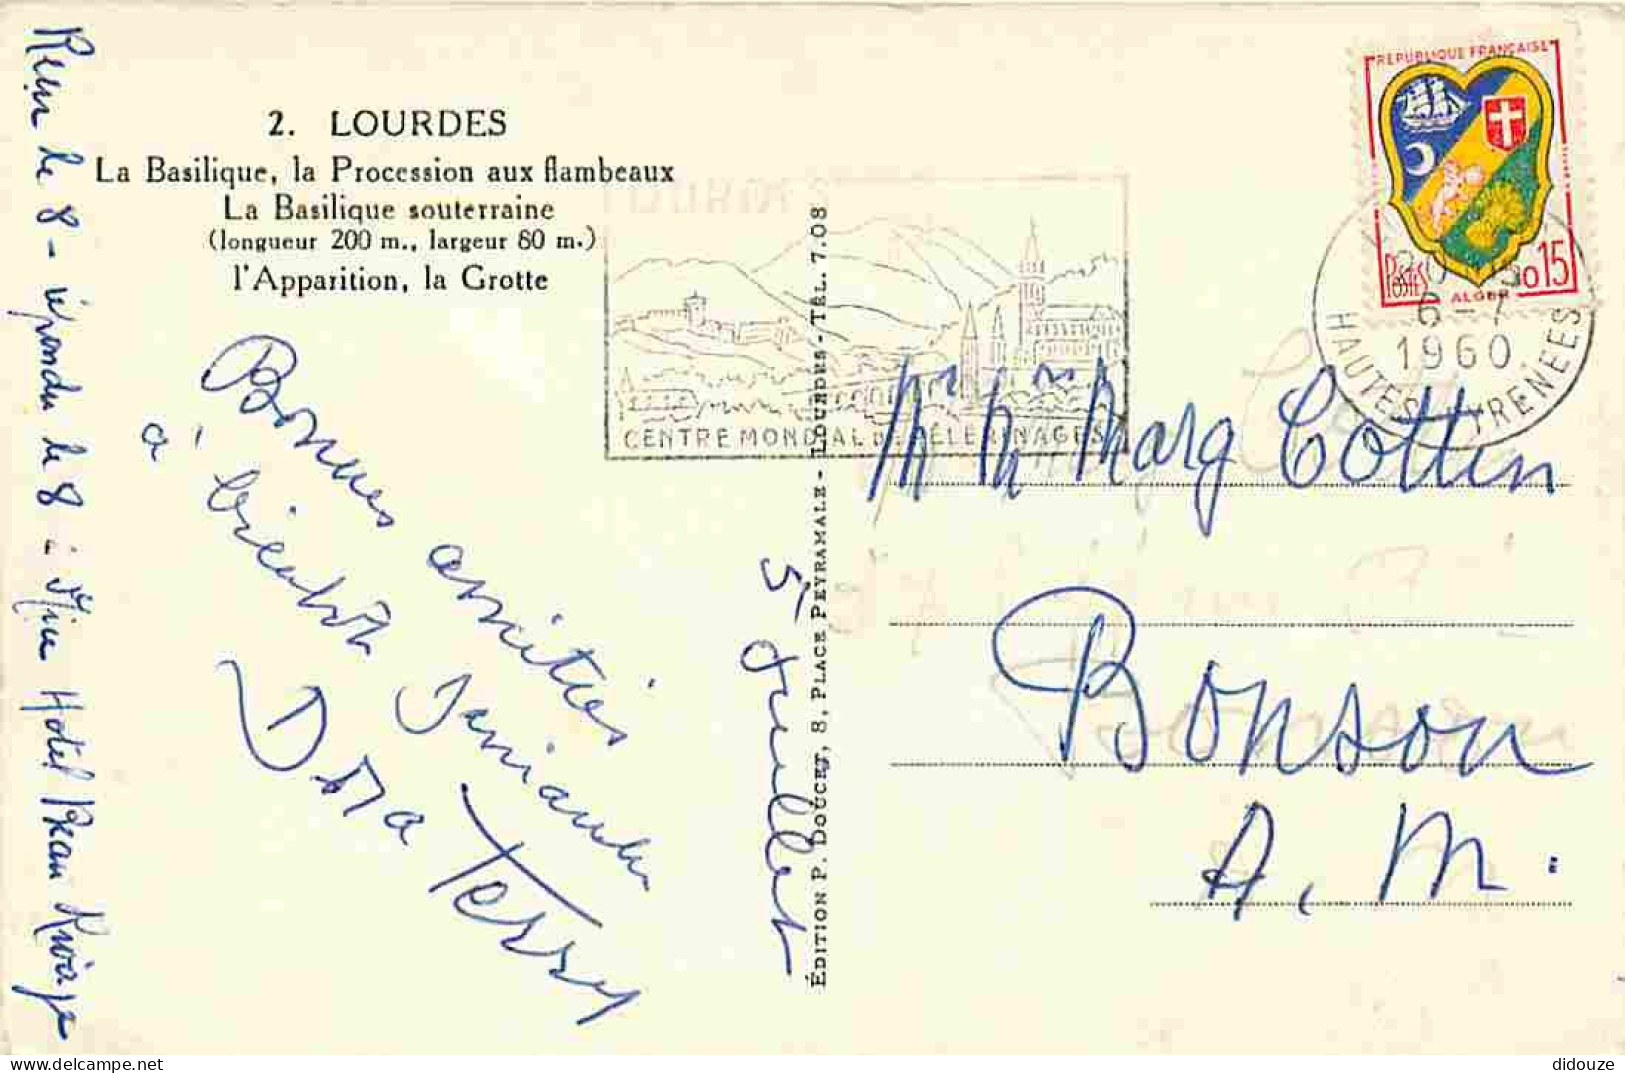 2. LOURDES
La Basilique, la Procession aux flambeaux
La Basilique souterraine
(longueur 200 m., largeur 80 m.)
l'Apparition, la Grotte
Bonnes amitiés
à bientôt
Dora Terry
5 Juillet
répondu le 8 à Nice Hotel Beau Rivage
ÉDITION P. DOUCET, 8, PLACE PEYRAMALE - LOURDES - TÉL. 7.08
CENTRE MONDIAL DE PÈLERINAGES
REPUBLIQUE FRANÇAISE
POSTES
ALGER
0,15
6-7
1960
HAUTES PYRENEES
Marg Cottin
Bonson
A. M.
didouze